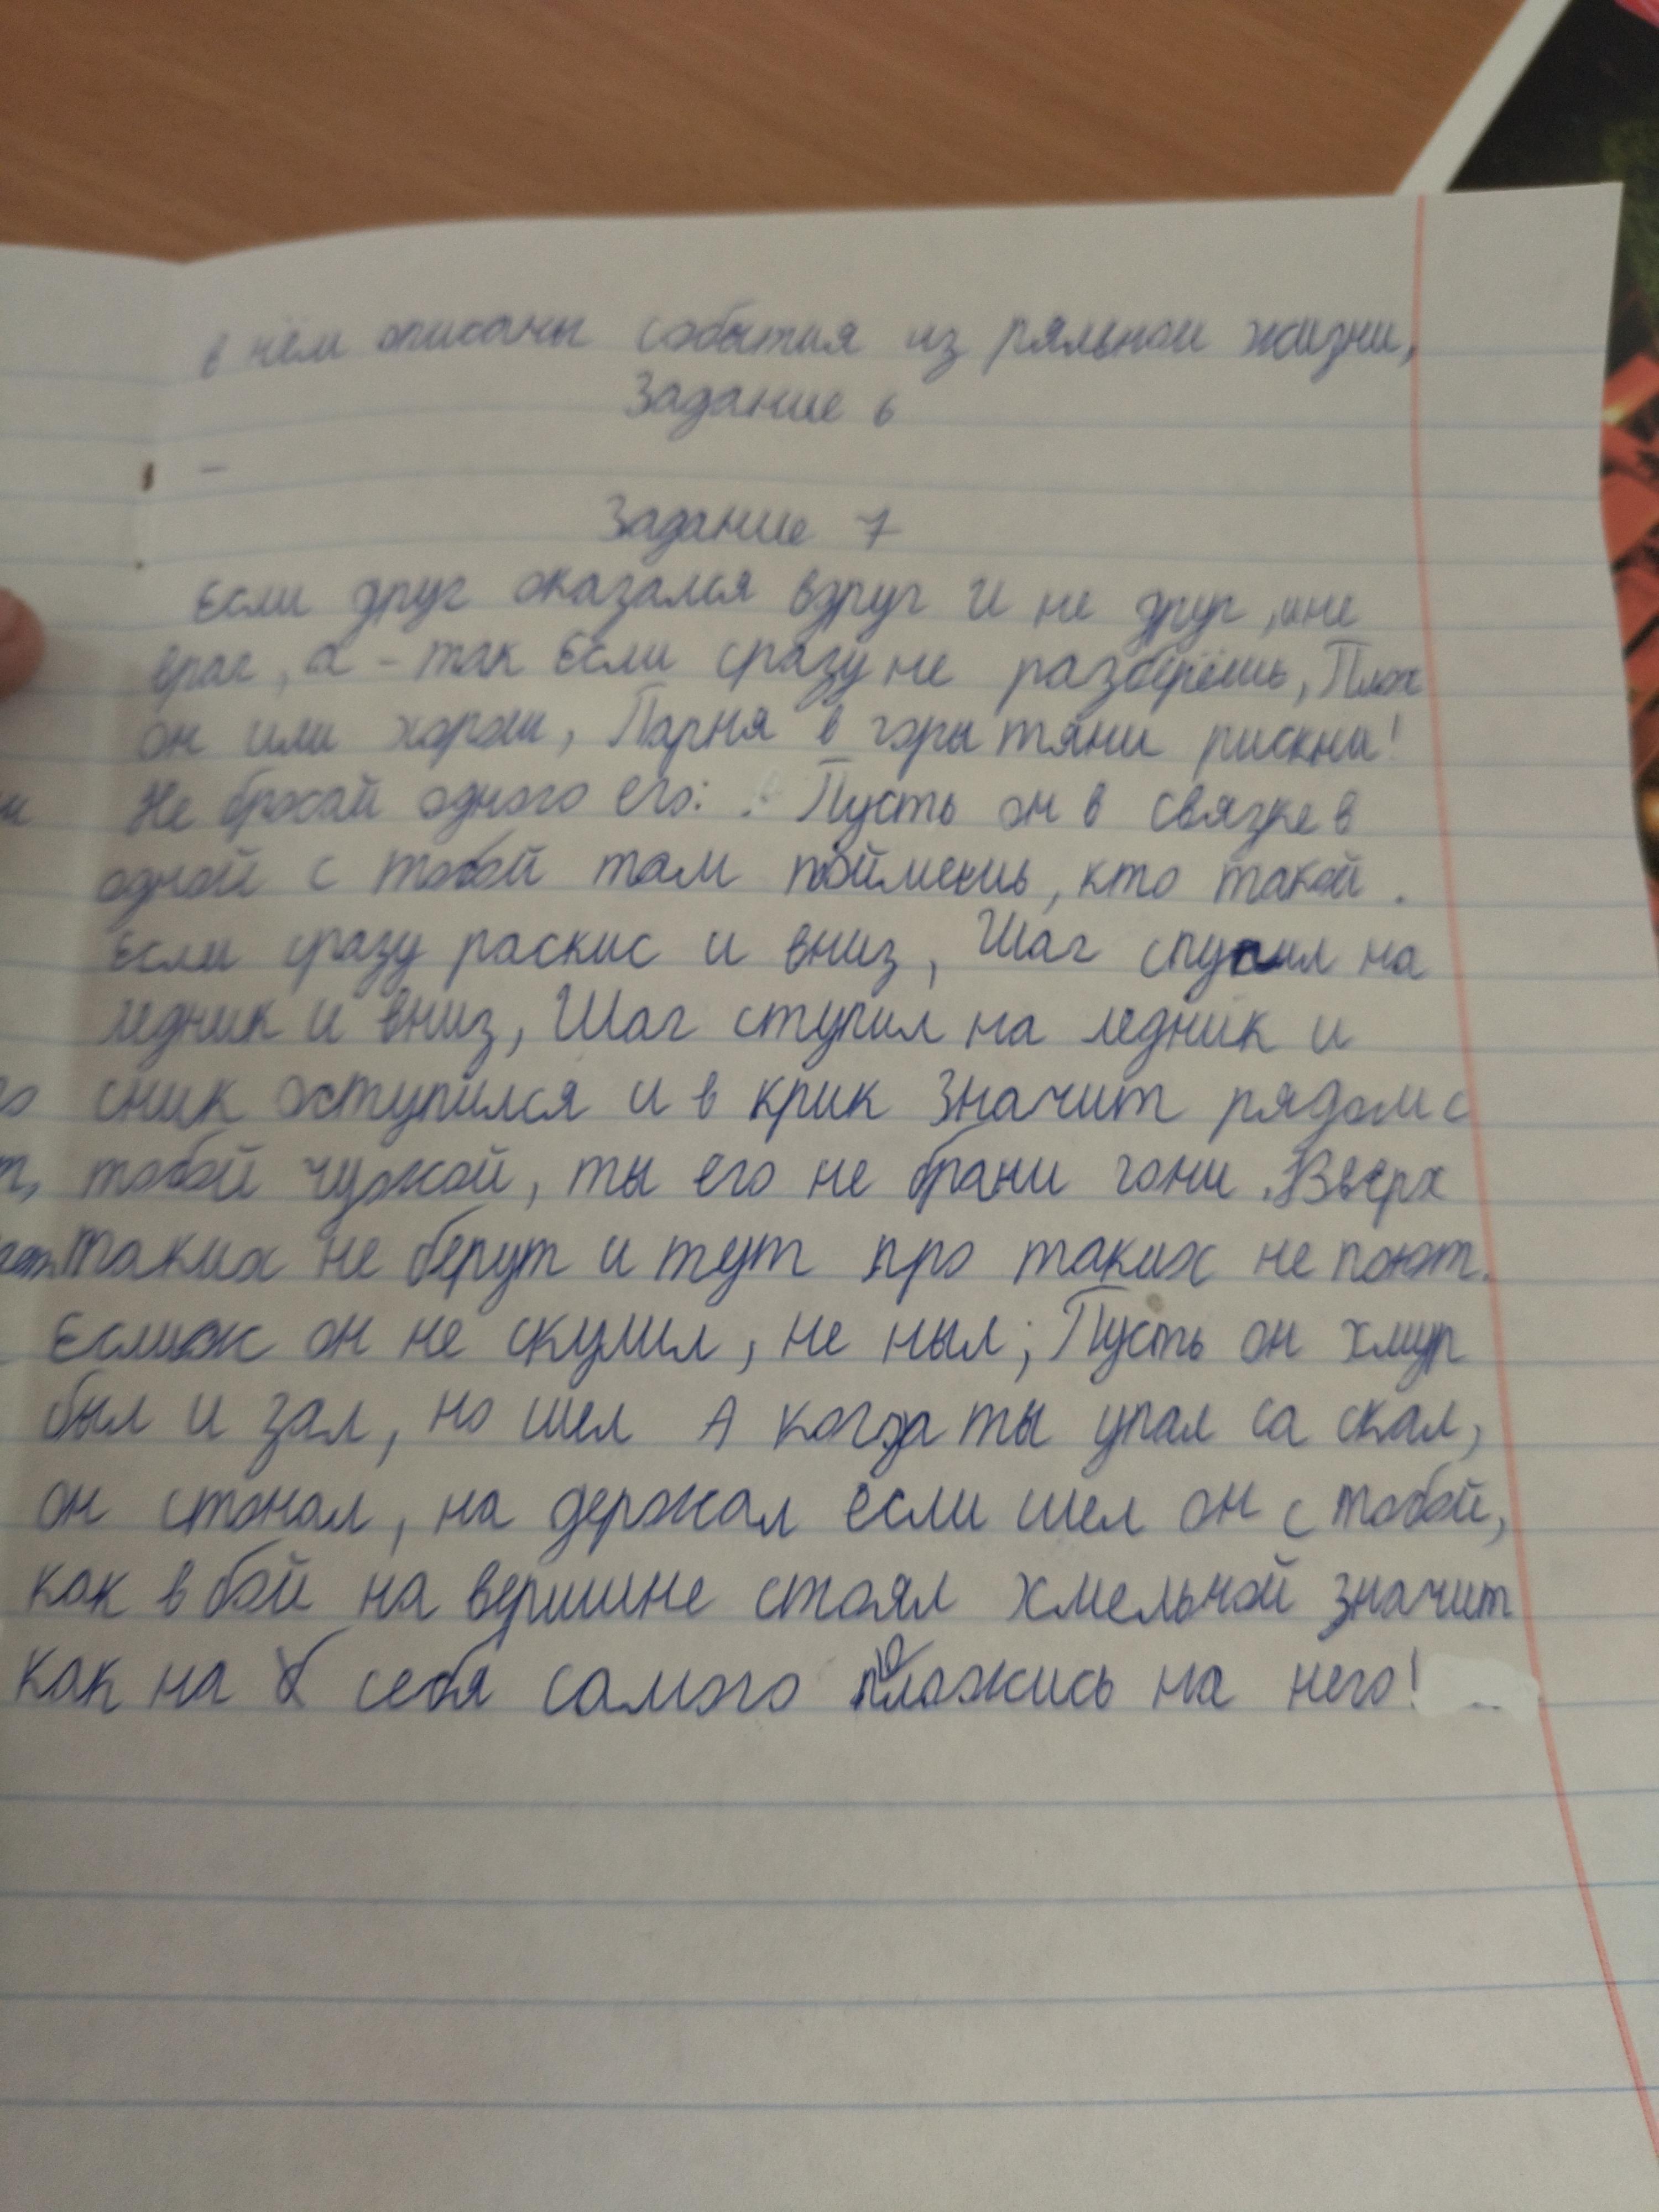 в чём описаны события из ряльной жизни,
Задание 6
–
Задание 7
Если друг оказался вдруг И не друг, и не
враг, а – так Если сразу не разберёшь, Плох
он или хорош, Парня в горы тяни рискни!
Не бросай одного его: Пусть он в связке в
одной с тобой там поймешь, кто такой.
Если сразу раскис и вниз, Шаг на
ледник и вниз, Шаг ступил на ледник и
сник оступился и в крик Значит рядом с
тобой чужой, ты его не брани гони. Вверх
таких не берут и тут про таких не поют.
Если ж он не скулил, не ныл; Пусть он хмур
был и зал, но шел А когда ты упал са скал,
он стонал, на держал если шел он с тобой,
как в бой на вершине стоял хмельной значит
как на себя самого положись на него!